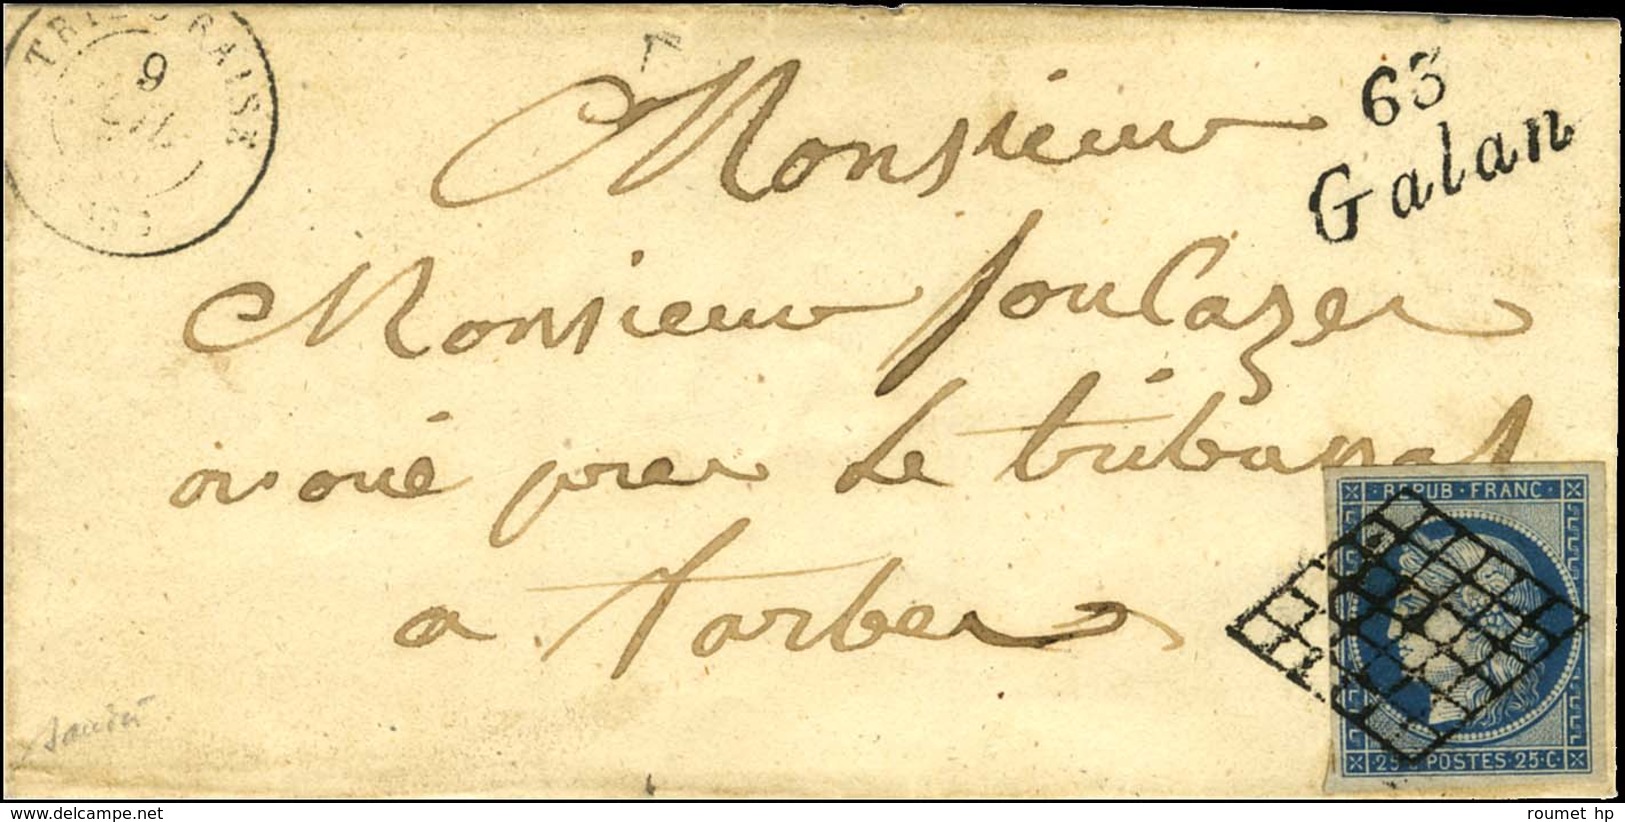 TRIE S GAISE
9
(63)
63
Galan
Monsieur
Monsieur foulazer
avoué pres le tribunal
a tarbes
REPUB · FRANC
25 C POSTES 25 · C
roumet hp